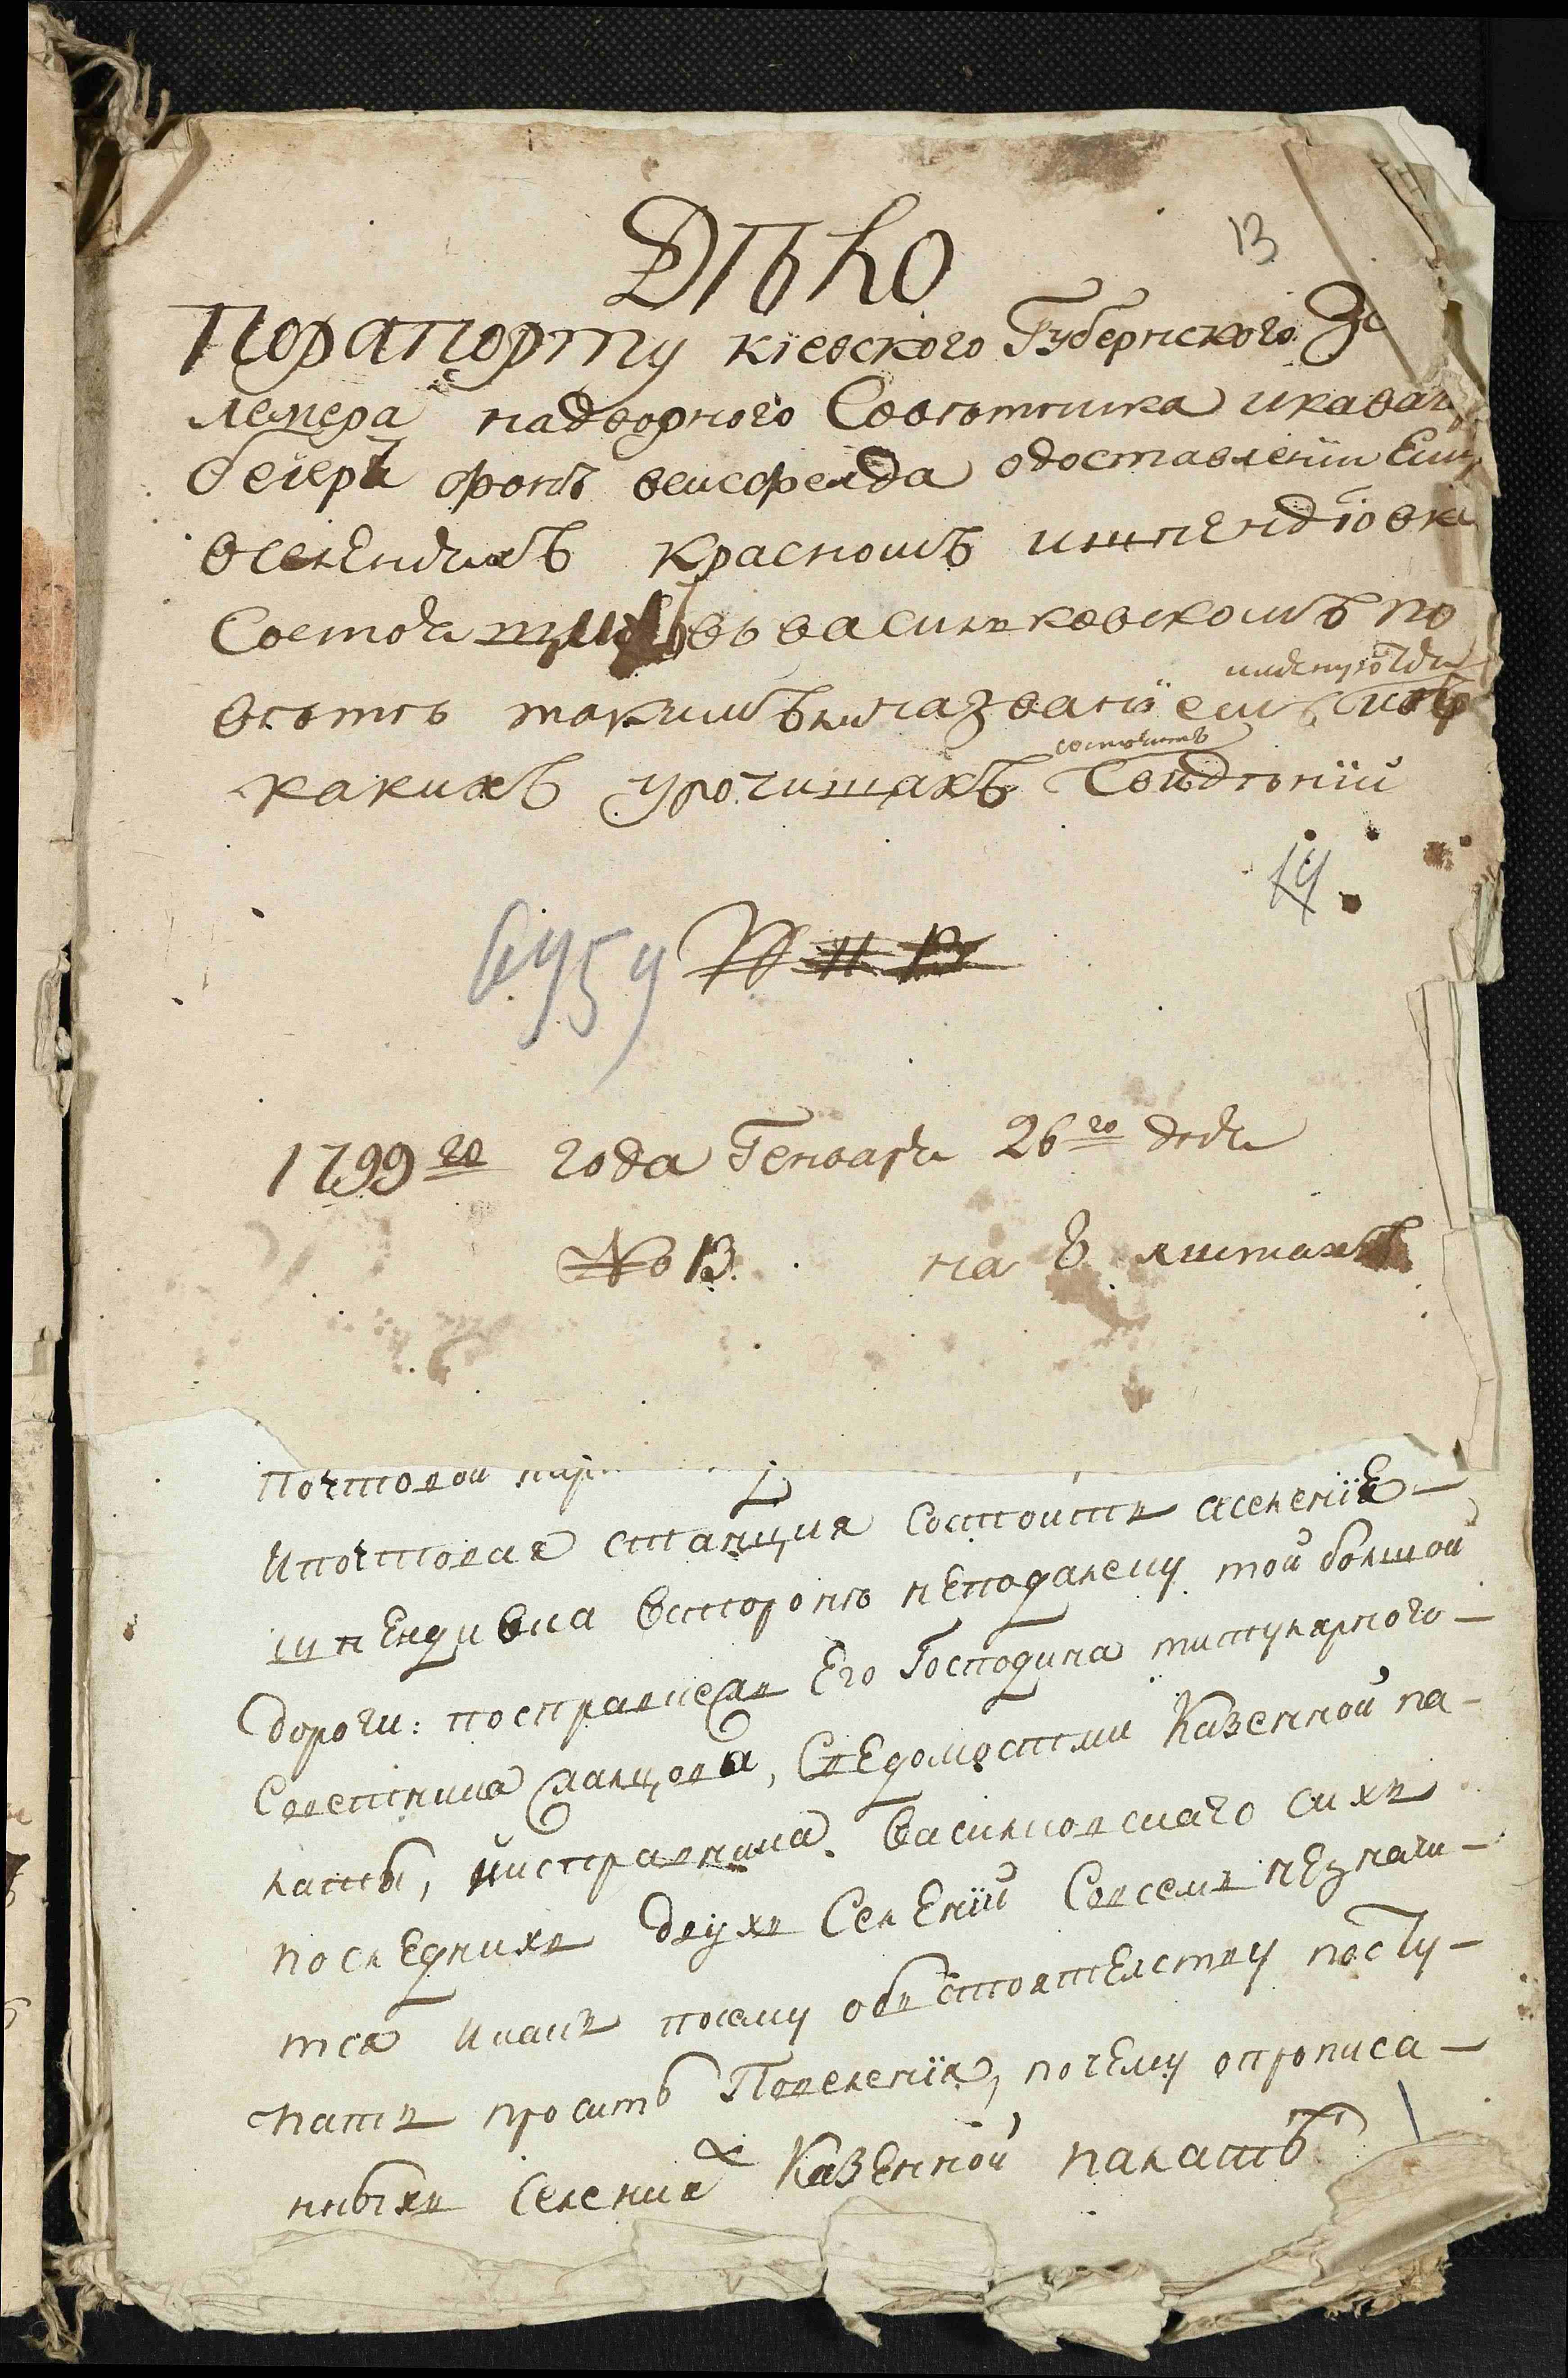 13
Дѣло
Порапорту кіевского Губернского Зе
млемера надворного Советника икавал
бегера фонъ веисфелда одоставлении Ему
оселениахъ красномъ ишпендіовки
Состоящихъ въ васильковскомъ по
ветѣ такимъ названіемъ
какихъ урочищахъ состоитъ Свидѣнии
14
6454
1799го года Генваря 26го дня
№ 13. на 8 листахъ
Почтовои
Ипочтовая станция Состоитъ аселеніе
шпендивка Всторонѣ неподалеку той болшой
дороги: посправнеже Его Господина титулярного
Советника Салцова, Сведомостми Казенной па-
латы, исправника Василковскаго сихъ
последнихъ двухъ Селеній Совсемъ незначи-
тся икакъ посему обстоятелству посту-
пать проситъ Повеленія, почему опрописа-
нныхъ Селения Казенной палатѣ